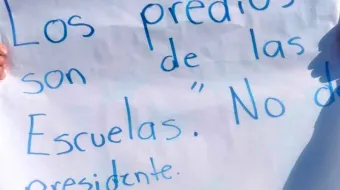 Los predios
son de las
Escuelas." No d
presidente.